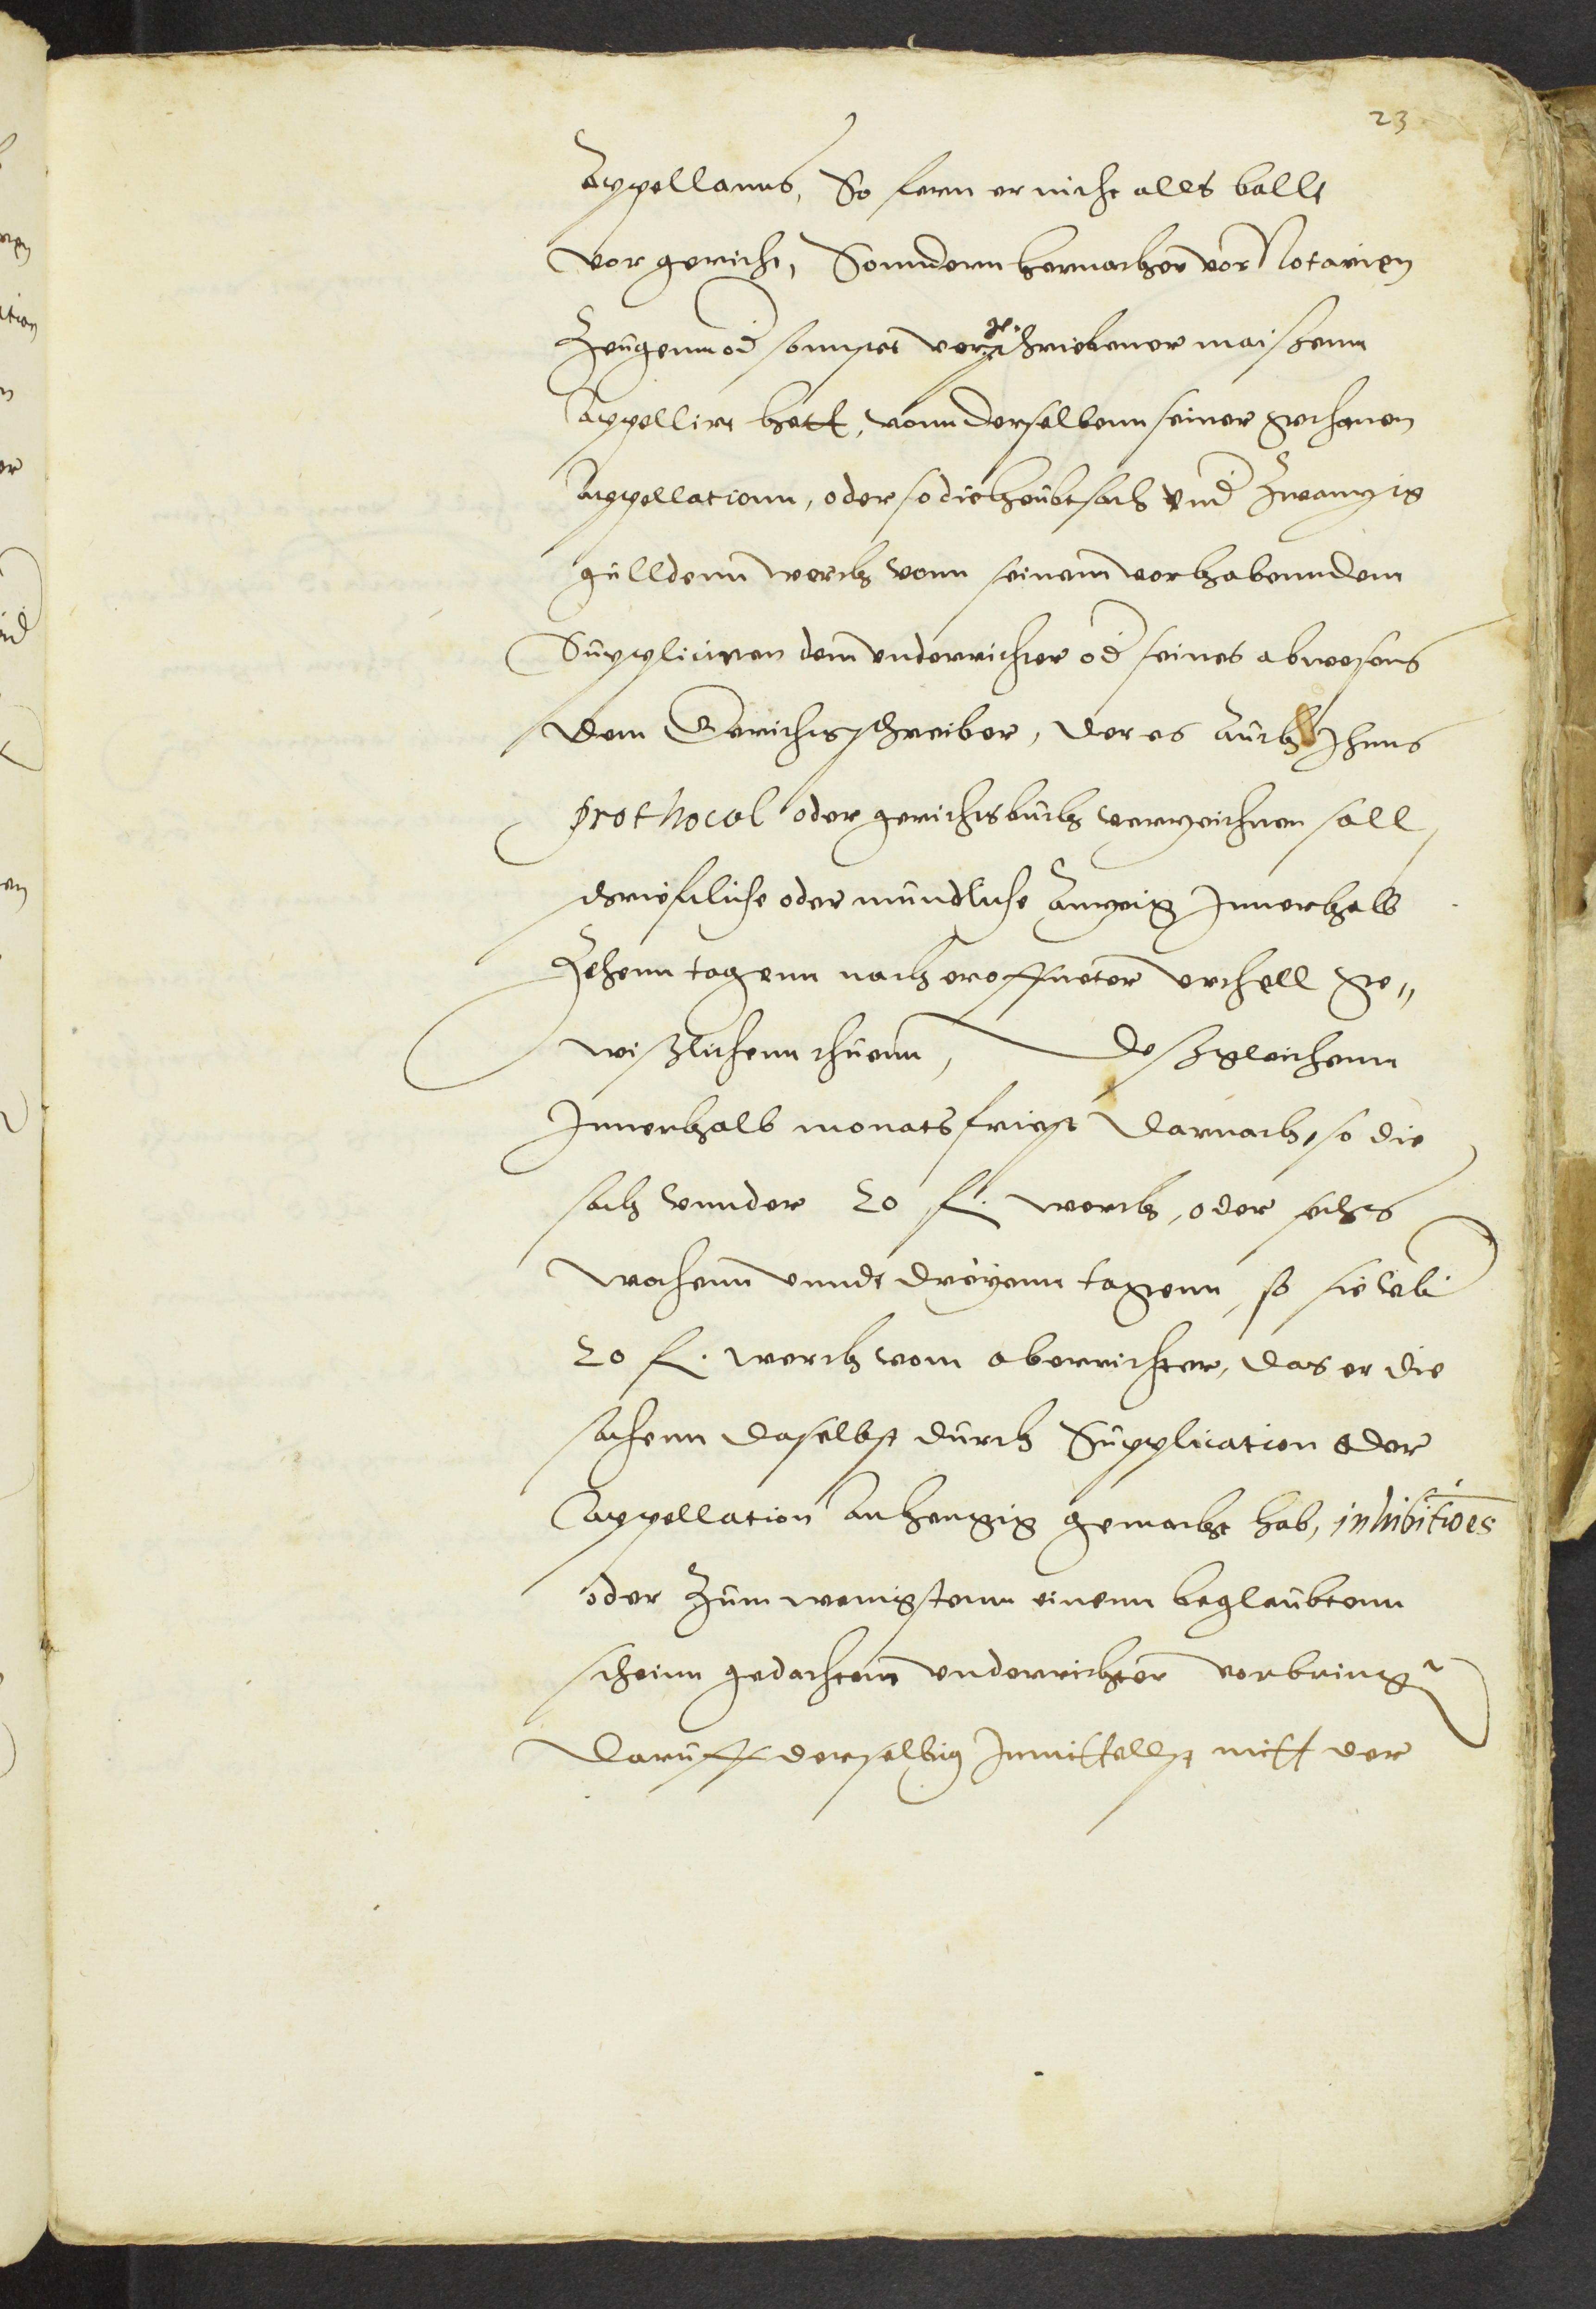 23
Appellanns, So fern er nicht alls ballt
vor gericht, Sonndern hernacher vor Notarien
Zeugenn od sonnsten vorgeschriebener maissenn
Appellirt hett, vonn derselbenn seiner gethanen
Appellationn, oder so die heubtsach und Zwanzig
gülldenn werth vonn seinem vorhabenndem
Suppliciren dem underrichter od seines abwesens
dem Gerichtsschreiber, der es auch Ihnns
prothocol oder gerichtsbuch verzeichnen soll,
schriefftliche oder mündliche Anzeig Innerhalb
Zehenn tagenn nach eroffneter urthell ge„
wißlichenn thuenn, Deßgleichenn
Innerhalb monats friest darnach, so die
sach unnder 20 fl. werth, oder sechs
wochenn unndt dreyenn tagenn, so sie ub
20 fl. werth vom oberrichter, das er die
sachenn daselbst durch Supplication oder
Appellation anhengig gemacht hab, inhibitioes
oder Zum wenigstenn einenn beglaubtenn
scheinn gedachtem underrichter vorbring
Daruff derselbig Inmittellst mitt der